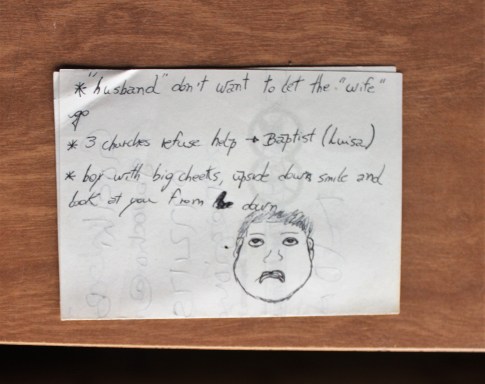 * "husband" don't want to let the "wife"
go
* 3 churches refuse help → Baptist (Luisa)
* boy with big cheeks, upside down smile and
look at you from down